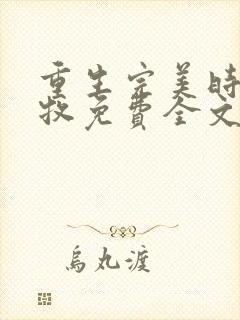 重生完美時
牧免費全文
烏丸渡